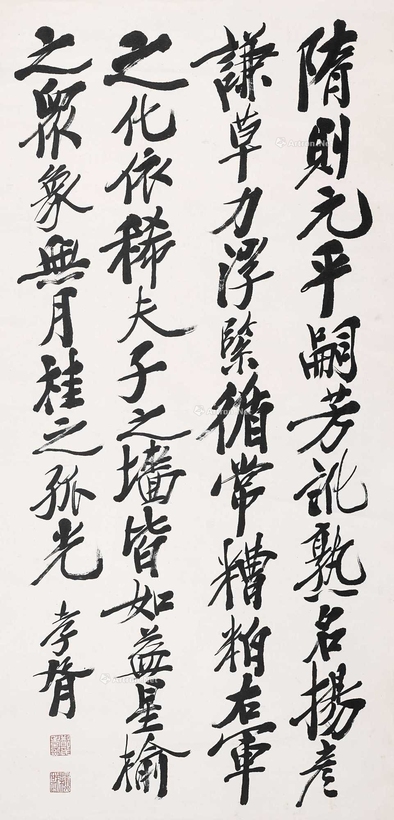 隋則元平嗣芳訛熟名揚彥
謙草力浮緊循常糟粕右軍
之化依稀夫子之墻皆如益星榆
之眾象無月桂之孤光
孝胥